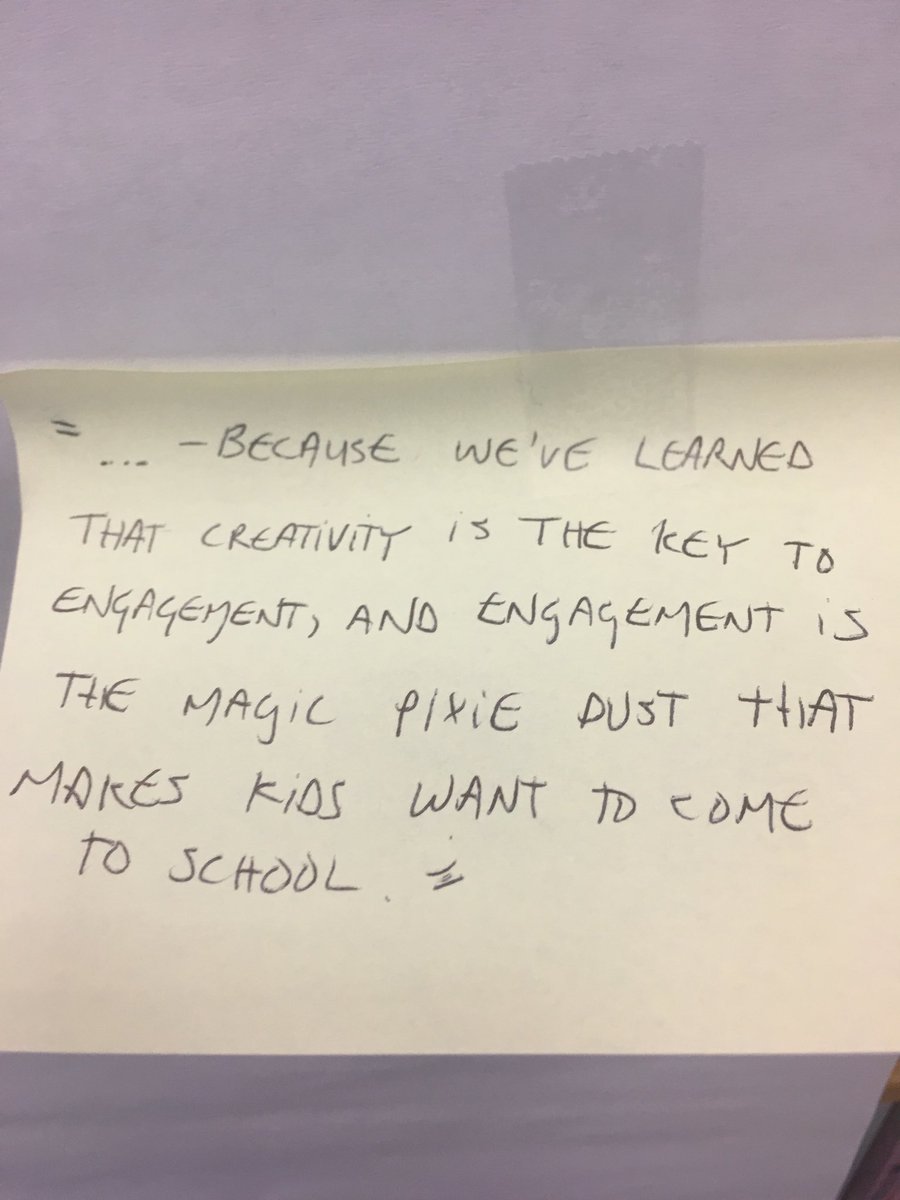 = ... - BECAUSE WE'VE LEARNED
THAT CREATIVITY IS THE KEY TO
ENGAGEMENT, AND ENGAGEMENT IS
THE MAGIC PIXIE DUST THAT
MAKES KIDS WANT TO COME
TO SCHOOL. =